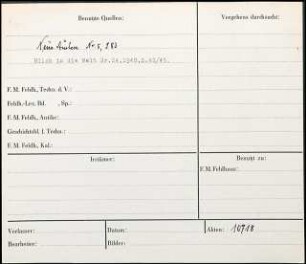 Benutzte Quellen:
Vergebens durchsucht:
Blick in die Welt Nr.24.1948,S.43/45.
F. M. Feldh., Techn. d. V.:
Feldh.-Lex. Bd. , Sp.:
F. M. Feldh., Antike:
Geschichtsbl. f. Techn.:
F. M. Feldh., Kal.:
Irrtümer:
Benutzt zu:
F. M. Feldhaus:
Verfasser:
Datum:
Akten: 10718
Bearbeiter:
Bilder: